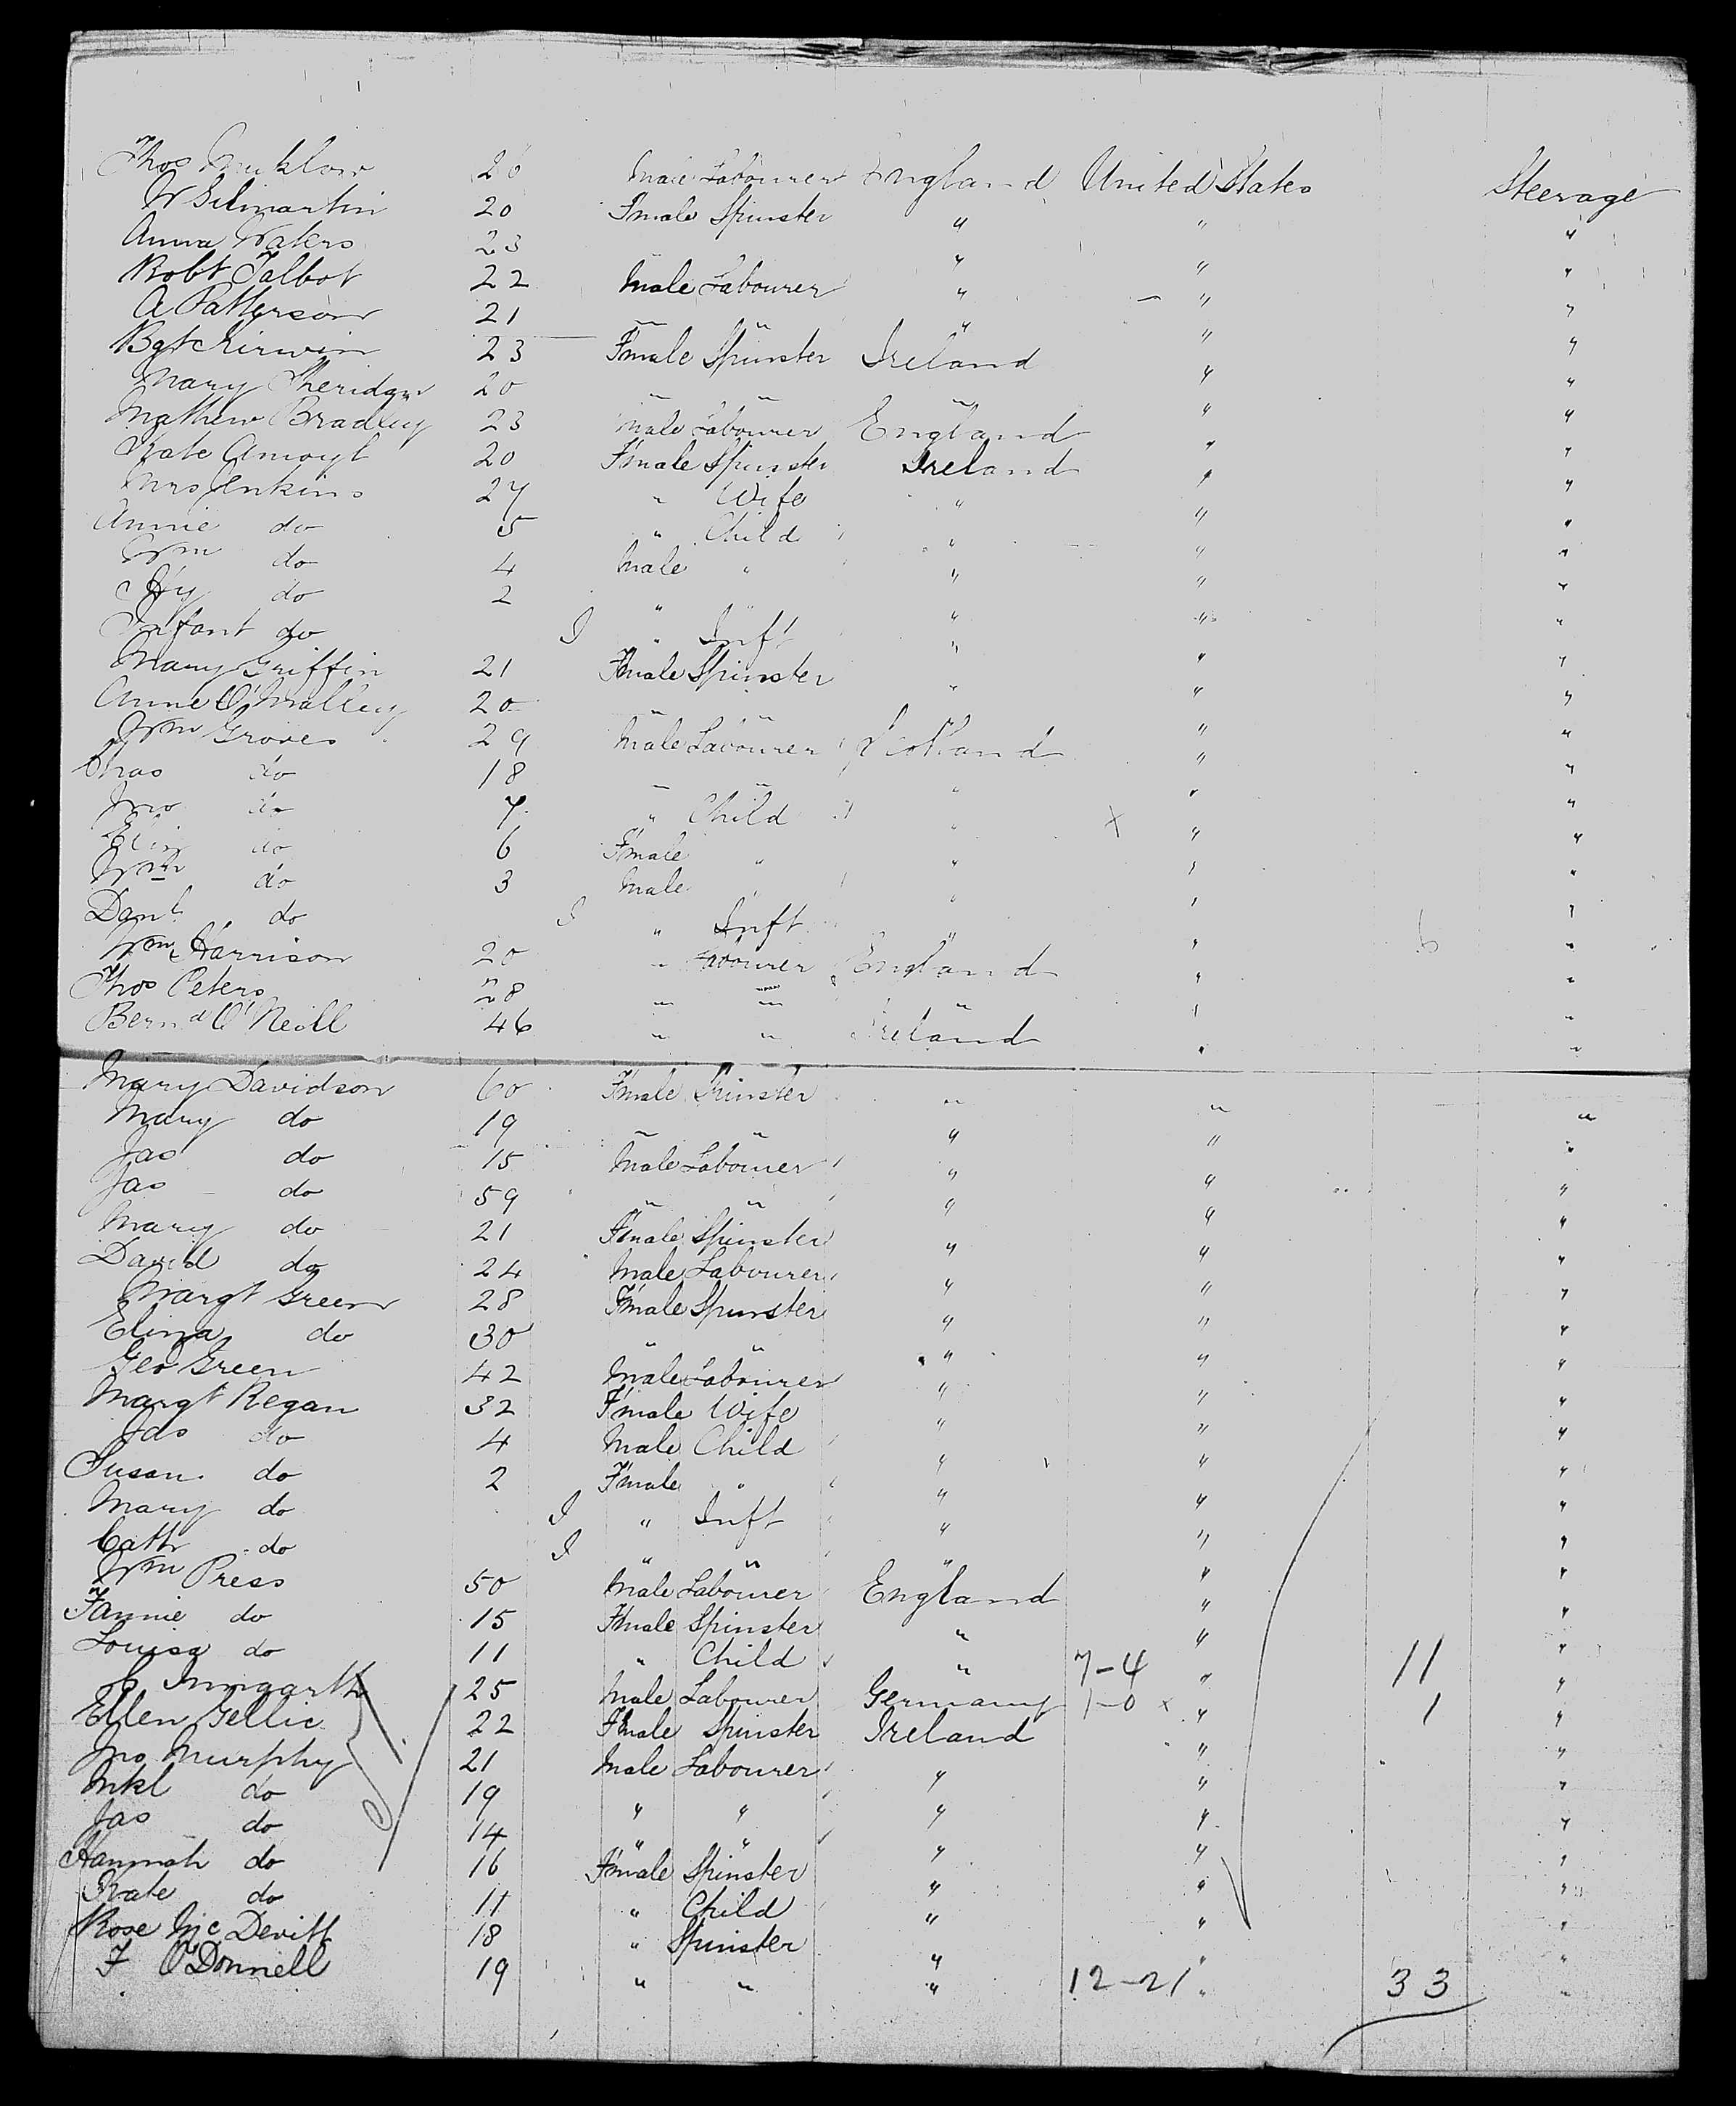 Thos 26 Male Labourer England United States Steerage
W Gilmartin 20 Female Spinster " " "
Anna Waters 23 " " "
Robt Talbot 22 Male Labourer " " "
A Patterson 21 " " " " "
Bgt Kirwin 23 Female Spinster Ireland " "
Mary Sheridan 20 " " " " "
Mathew Bradley 23 Male Labourer England " "
Kate 20 Female Spinster Ireland " "
Mrs Jenkins 27 " Wife " " "
Annie do 5 " Child " " "
Wm do 4 Male " " " "
Hy do 2 " " " " "
Infant do I " Inft " " "
Mary Griffin 21 Female Spinster " " "
Anne O'Malley 20 " " " " "
Wm Groves 29 Male Labourer Scotland " "
Chas do 18 " " " " "
Jno do 7 " Child " X " "
do 6 Female " " " "
Wm do 3 Male " " " "
Danl do I " Inft " " "
Wm Harrison 20 " Labourer England " "
Thos Peters 28 " " " " "
Bernd O'Neill 46 " " Ireland " "
Mary Davidson 60 Female Spinster " " "
Mary do 19 " " " " "
Jas do 15 Male Labourer " " "
Jas do 59 " " " " "
Mary do 21 Female Spinster " " "
David do 24 Male Labourer " " "
Margt Green 28 Female Spinster " " "
Eliza do 30 " " " " "
Geo Green 42 Male Labourer " " "
Margt Regan 32 Female Wife " " "
Jas do 4 Male Child " " "
Susan do 2 Female " " " "
Mary do I " Inft " " "
Cath do I " " " " "
Wm Press 50 Male Labourer England " "
Fannie do 15 Female Spinster " " "
Louisa do 11 " Child " 7-4 " 11 "
C 25 Male Labourer Germany 1-0 x " 1 "
Ellen Gellic 22 Female Spinster Ireland " "
Jno Murphy 21 Male Labourer " " "
Mkl do 19 " " " " "
Jas do 14 " " " " "
Hannah do 16 Female Spinster " " "
Kate do 11 " Child " " "
Rose McDevitt 18 " Spinster " " "
F O'Donnell 19 " " " 12-21 " 33 "